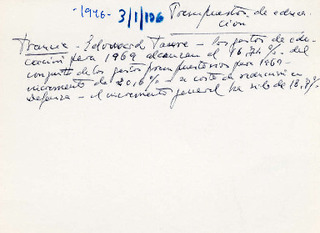 -1946- 3/1/106 Presupuestos de educación
Francia - Edouard Faure - Los gastos de edu-
cación para 1969 alcanzan al 16,24% del
conjunto de los gastos presupuestarios para 1969 -
incremento de 20,6% - a costa en reducción en
Defensa - el incremento general ha sido de 13,8%